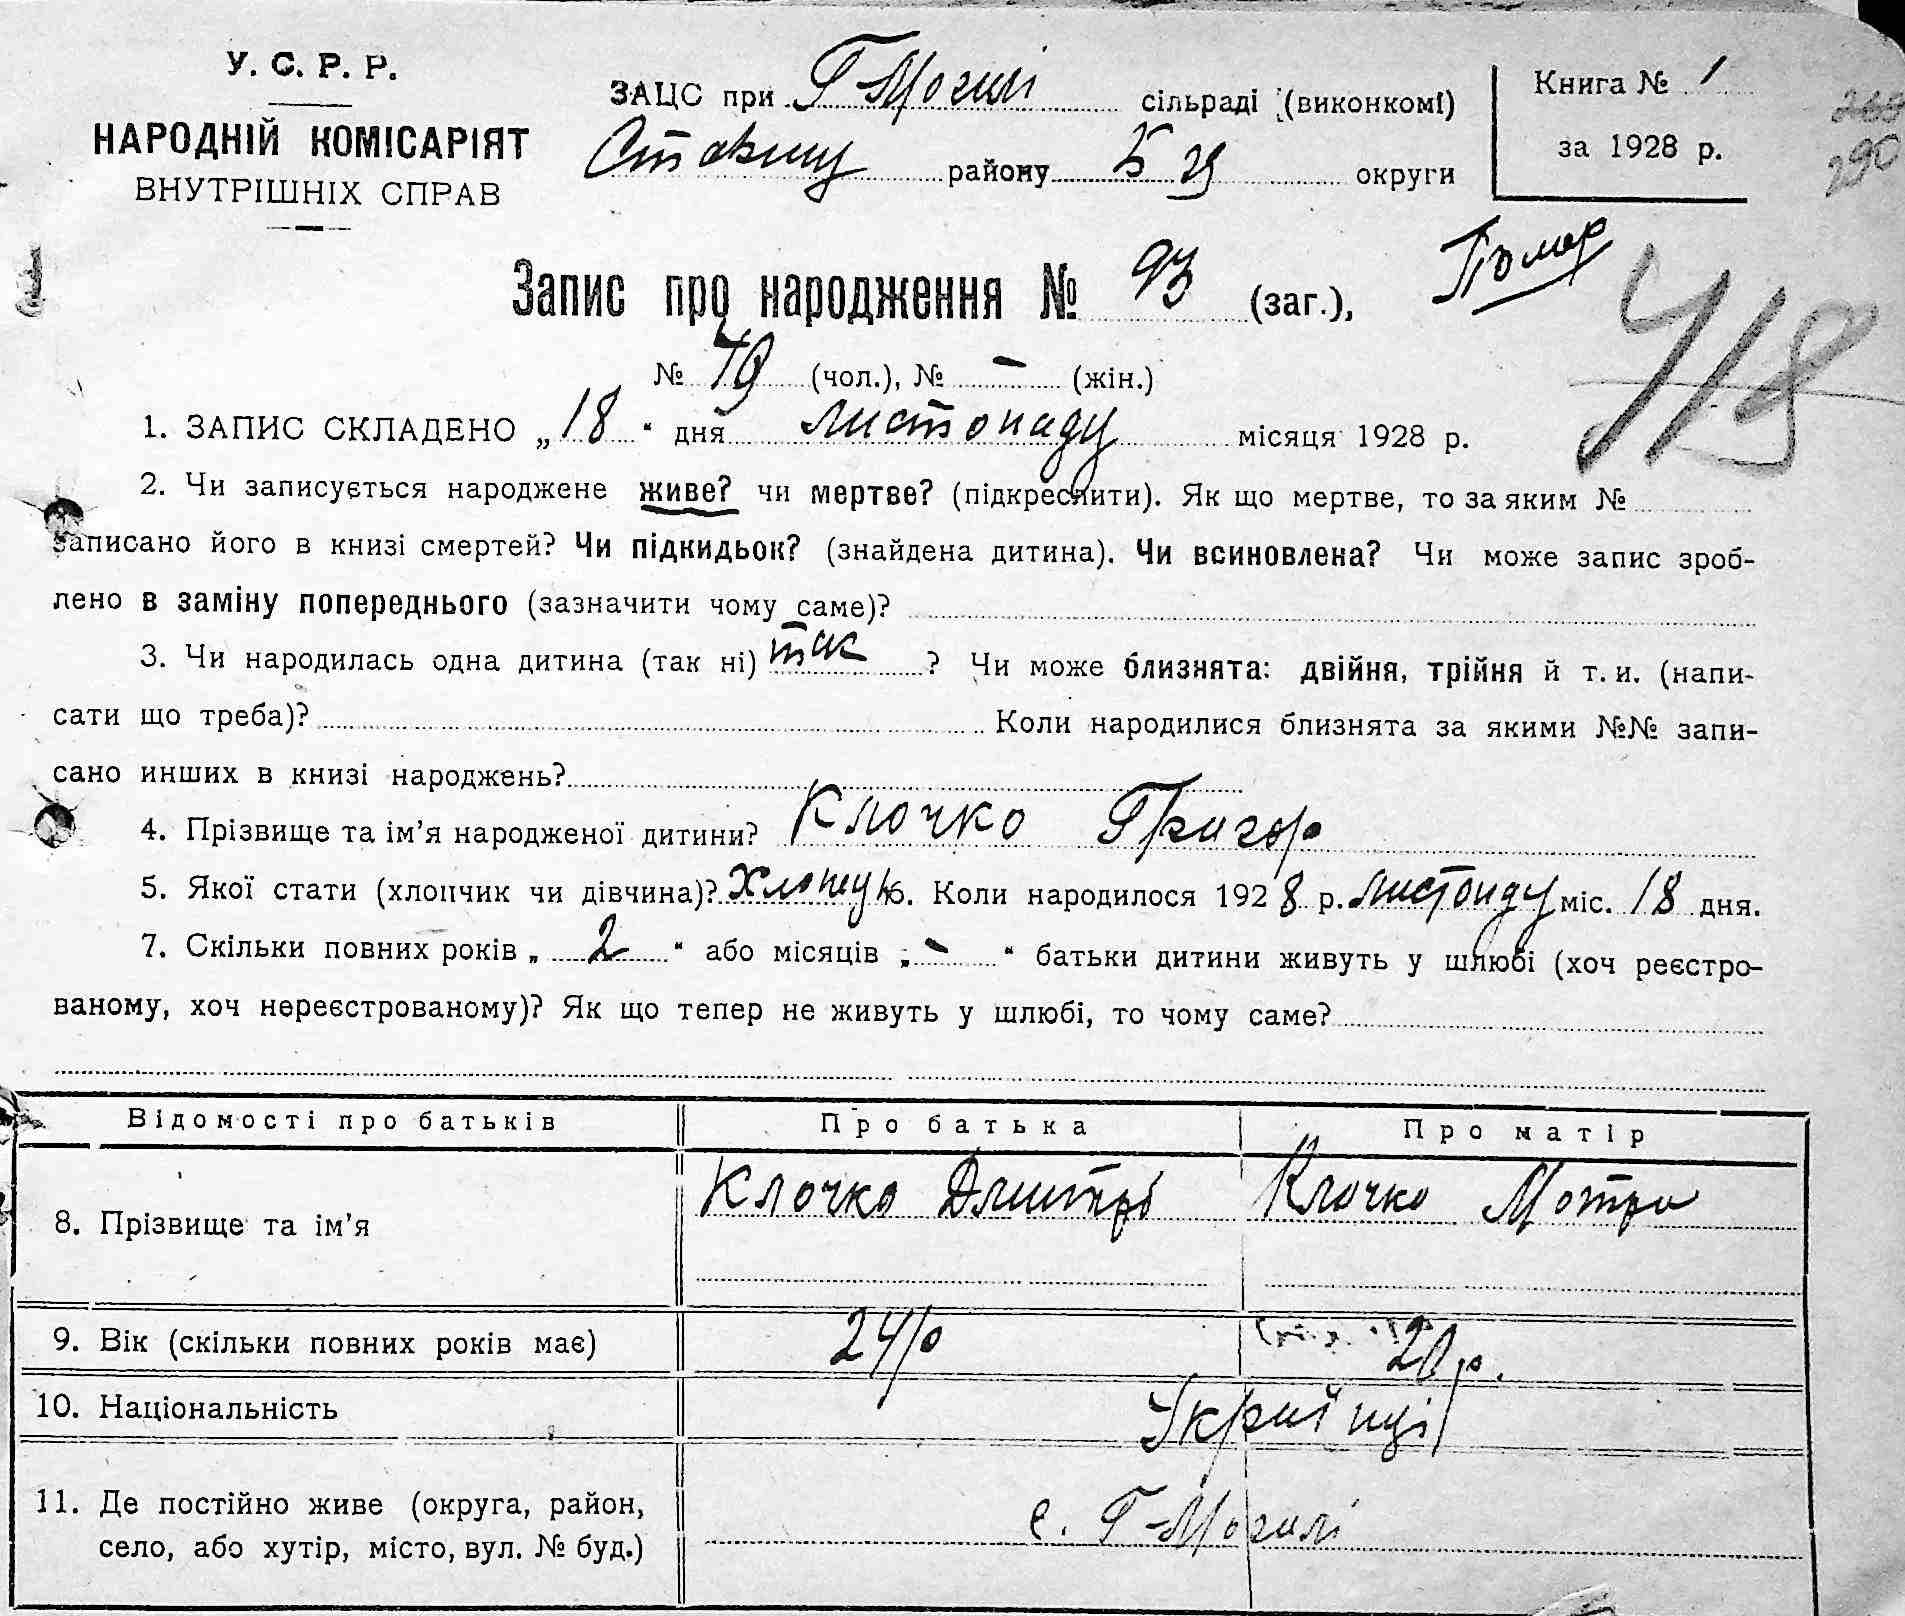 У. С. Р. Р.
НАРОДНІЙ КОМІСАРІЯТ
ВНУТРІШНІХ СПРАВ
ЗАЦС при Г-Могилі сільраді (виконкомі)
району округи
Книга № 1
за 1928 р.
290
Запис про народження № 93 (заг.),
Помер
118
№ 49 (чол.), № – (жін.)
1. ЗАПИС СКЛАДЕНО „18“ дня листопаду місяця 1928 р.
2. Чи записується народжене живе? чи мертве? (підкреслити). Як що мертве, то за яким №
записано його в книзі смертей? Чи підкидьок? (знайдена дитина). Чи всиновлена? Чи може запис зроб-
лено в заміну попереднього (зазначити чому саме)?
3. Чи народилась одна дитина (так ні) так ? Чи може близнята: двійня, трійня й т. и. (напи-
сати що треба)? Коли народилися близнята за якими №№ запи-
сано инших в книзі народжень?
4. Прізвище та ім’я народженої дитини? Клочко Григор
5. Якої стати (хлопчик чи дівчина)? 6. Коли народилося 1928 р. міс. 18 дня.
7. Скільки повних років „2“ або місяців „-“ батьки дитини живуть у шлюбі (хоч реєстро-
ваному, хоч нереєстрованому)? Як що тепер не живуть у шлюбі, то чому саме?
Відомості про батьків Про батька Про матір
8. Прізвище та ім’я Клочко Дмитрі Клочко Мотра
9. Вік (скільки повних років має) 24р 20р.
10. Національність Українці
11. Де постійно живе (округа, район, с. Г-Могилі
село, або хутір, місто, вул. № буд.)